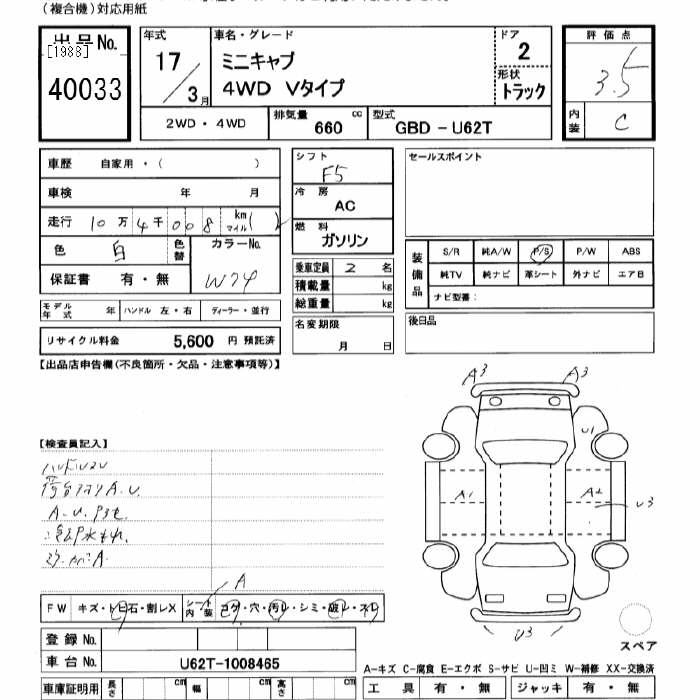 （複合機）対応用紙
出品No.
[1988]
40033
年式
17/3月
車名・グレード
ミニキャブ
4WD Vタイプ
ドア
2
形状
トラック
評価点
3.5
内装
C
2WD・4WD
排気量
660 cc
型式
GBD-U62T
車歴 自家用・（ ）
車検 年 月
走行 10万4千008 km マイル ( )
色 白 色替 カラーNo. W74
保証書 有・無
モデル年式 年 ハンドル 左・右 ディーラー・並行
リサイクル料金 5,600 円 預託済
シフト
F5
冷房
AC
燃料
ガソリン
乗車定員 2 名
積載量 kg
総重量 kg
名変期限
月 日
セールスポイント
装備品
S/R 純A/W P/S P/W ABS
純TV 純ナビ 革シート 外ナビ エアB
ナビ型番：
後日品
【出品店申告欄（不良箇所・欠品・注意事項等）】
A3 A3
U1
A1 A2 U3
U3
【検査員記入】
A.U.
A
FW キズ・トビ石・割レX シート内装 コゲ・穴・汚レ・シミ・破レ・スレ
登録No.
車台No. U62T-1008465
車庫証明用 長さ cm 幅 cm 高さ cm
スペア
A-キズ C-腐食 E-エクボ S-サビ U-凹ミ W-補修 XX-交換済
工具 有・無 ジャッキ 有・無